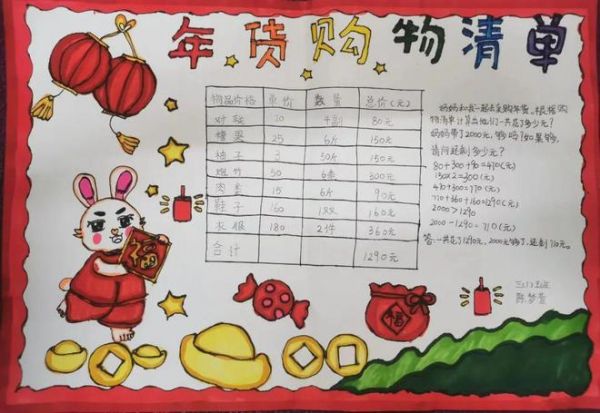 年货购物清单
物品价格 单价 数量 总价(元)
对联 20 4副 80元
糖果 25 6斤 150元
柚子 3 50斤 150元
爆竹 50 6条 300元
肉类 15 6斤 90元
鞋子 160 1双 160元
衣服 180 2件 360元
合计 1290元
妈妈和我一起去采购年货,根据购
物清单计算出他们一共花了多少元?
妈妈带了2000元,够吗?如果够,
请问还剩多少元?
80+300+90=470(元)
150×2=300(元)
470+300=770(元)
770+360+160=1290(元)
2000>1290
2000-1290=710(元)
答:一共花了1290元,2000元够了,还剩710元。
三(1)班
陈梦萱
福
福